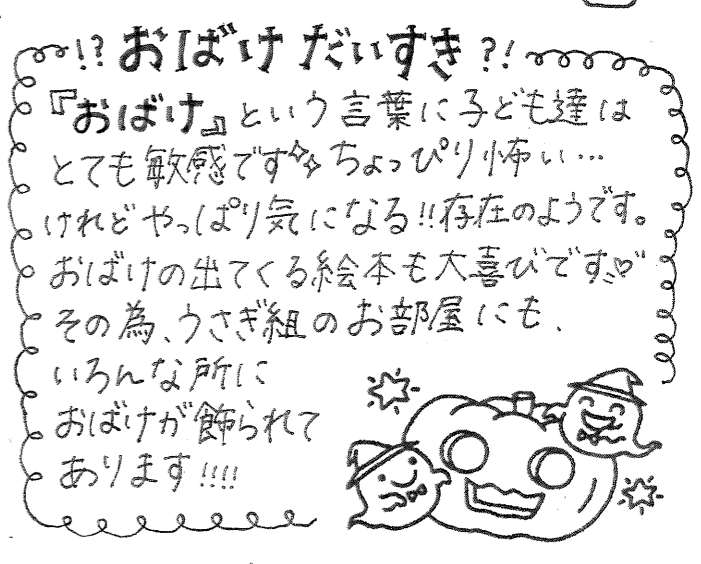 !? おばけだいすき ?!
『おばけ』という言葉に子ども達は
とても敏感です✨ちょっぴり怖い…
けれどやっぱり気になる!!存在のようです。
おばけの出てくる絵本も大喜びです♡
その為、うさぎ組のお部屋にも、
いろんな所に
おばけが飾られて
あります!!!!